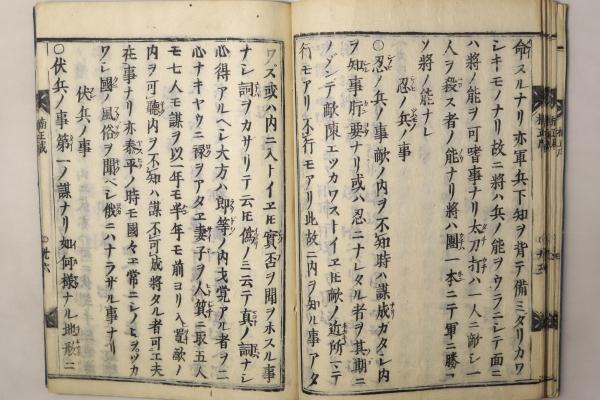 命スルナリ亦軍兵下知ヲ背テ備ミタリカワ
シキモノナリ故ニ將ハ兵ノ能ヲウラニシテ面ニ
ハ將ノ能ヲ可嗜事ナリ太刀打ハ一人ニ敵シ一
人ヲ殺ス者ノ能ナリ將ハ團一本ニテ軍ニ勝コ
ソ將ノ能ナレ
忍ノ兵ノ事
〇忍ノ兵ノ事敵ノ内ヲ不知時ハ謀成カタシ内
ヲ知事肝要ナリ或ハ忍ニナレタル者ヲ其期ニ
ノゾンテ敵陳エツカワストイエ𪜈敵ノ近所ニテ
行モアリ不行モアリ此故ニ内ヲ知ル事アタ
ワズ或ハ内ニ入トイエ𪜈實否ヲ聞ヲホスル事
ナシ詞ヲカサリテ云𪜈偽ノミ云テ真ノ詞ナシ
心得アルヘシ大方ハ郎等ノ内戈覚アル者ヲ二
心ナキヤウニ禄ヲアタエ妻子ヲ人質ニ取五人
モ七人モ謀ヲ以一年モ半年モ前ヨリ入置敵ノ
内ヲ可聽内ヲ不知ハ謀不可成將タル者可工夫
在事ナリ亦泰平ノ時モ國々エ常ニシノヒヲツカ
ワシ國ノ風俗ヲ聞ヘシ俄ニハナラザル事ナリ
伏兵ノ事
〇伏兵ノ事第一ノ謀ナリ如何様ナル地形ニ
楠正成
〇廿六